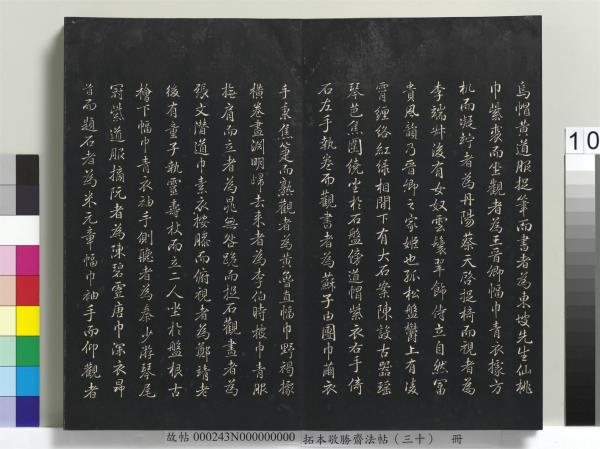 烏帽黃道服捉筆而書者為東坡先生仙桃
巾紫裘而坐觀者為王晉卿幅巾青衣據方
机而凝竚者為丹陽蔡天啓捉椅而視者為
李端叔後有女奴雲鬟翠飾侍立自然富
貴風韻乃晉卿之家姬也孤松盤鬱上有凌
霄纏絡紅綠相間下有大石案陳設古器瑤
琴芭蕉圍繞坐於石盤傍道帽紫衣右手倚
石左手執卷而觀書者為蘇子由團巾繭衣
手秉蕉箑而熟觀者為黃魯直幅巾野褐據
橫卷畫淵明歸去來者為李伯時披巾青服
撫肩而立者為晁無咎跪而捉石觀畫者為
張文潛道巾素衣按膝而俯視者為鄭靖老
後有童子執靈壽杖而立二人坐於盤根古
檜下幅巾青衣袖手側聽者為秦少游琴尾
冠紫道服摘阮者為陳碧虛唐巾深衣昂
首而題石者為米元章幅巾袖手而仰觀者
故帖 000243N000000000 拓本敬勝齋法帖（三十） 冊
10